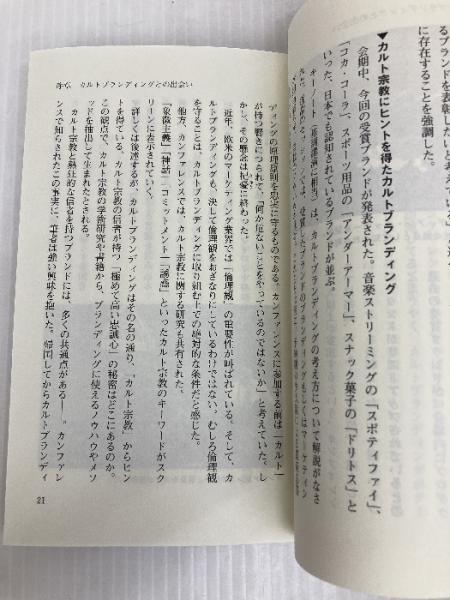 るブランドを表彰したいと考え
に存在することを強調した。
▼カルト宗教にヒントを得たカルトブランディング
会期中、今回の受賞ブランドが発表された。音楽ストリーミングの「スポティファイ」、
「コカ・コーラ」、スポーツ用品の「アンダーアーマー」、スナック菓子の「ドリトス」と
いった、日本でも認知されているブランドが並ぶ。
キーノート（基調講演に相当）は、カルトブランディングの考え方について解説がなさ
ディングの原理原則を忠実に守るものである。カンファレンスに参加する前は「カルト」
が持つ響きにつられて、「何か危ないことをやっているのではないか」と考えていた。し
かし、その懸念は杞憂に終わった。
近年、欧米のマーケティング業界では「倫理観」の重要性が叫ばれている。そして、カ
ルトブランディングも、決して倫理観をおざなりにしているわけではない。むしろ倫理観
を守ることは、カルトブランディングに取り組む上での絶対的な条件だと感じた。
他方、カンファレンスでは、カルト宗教に関する研究も共有された。
「象徴主義」「神話」「コミットメント」「議論」といったカルト宗教のキーワードがスク
リーンに表示されていく。
詳しくは後述するが、カルトブランディングはその名の通り、「カルト宗教」からヒン
トを得ている。カルト宗教の信者が持つ「極めて高い忠誠心」の秘密はどこにあるのか。
この観点で、カルト宗教の学術研究や書籍から、ブランディングに使えるノウハウやメソ
ッドを抽出して生まれたとされる。
カルト宗教と熱狂的な信者を持つブランドには、多くの共通点がある──。カンファレ
ンスで知らされたこの事実に、筆者は強い興味を抱いた。帰国してからカルトブランディ
序章　カルトブランディングとの出会い
21